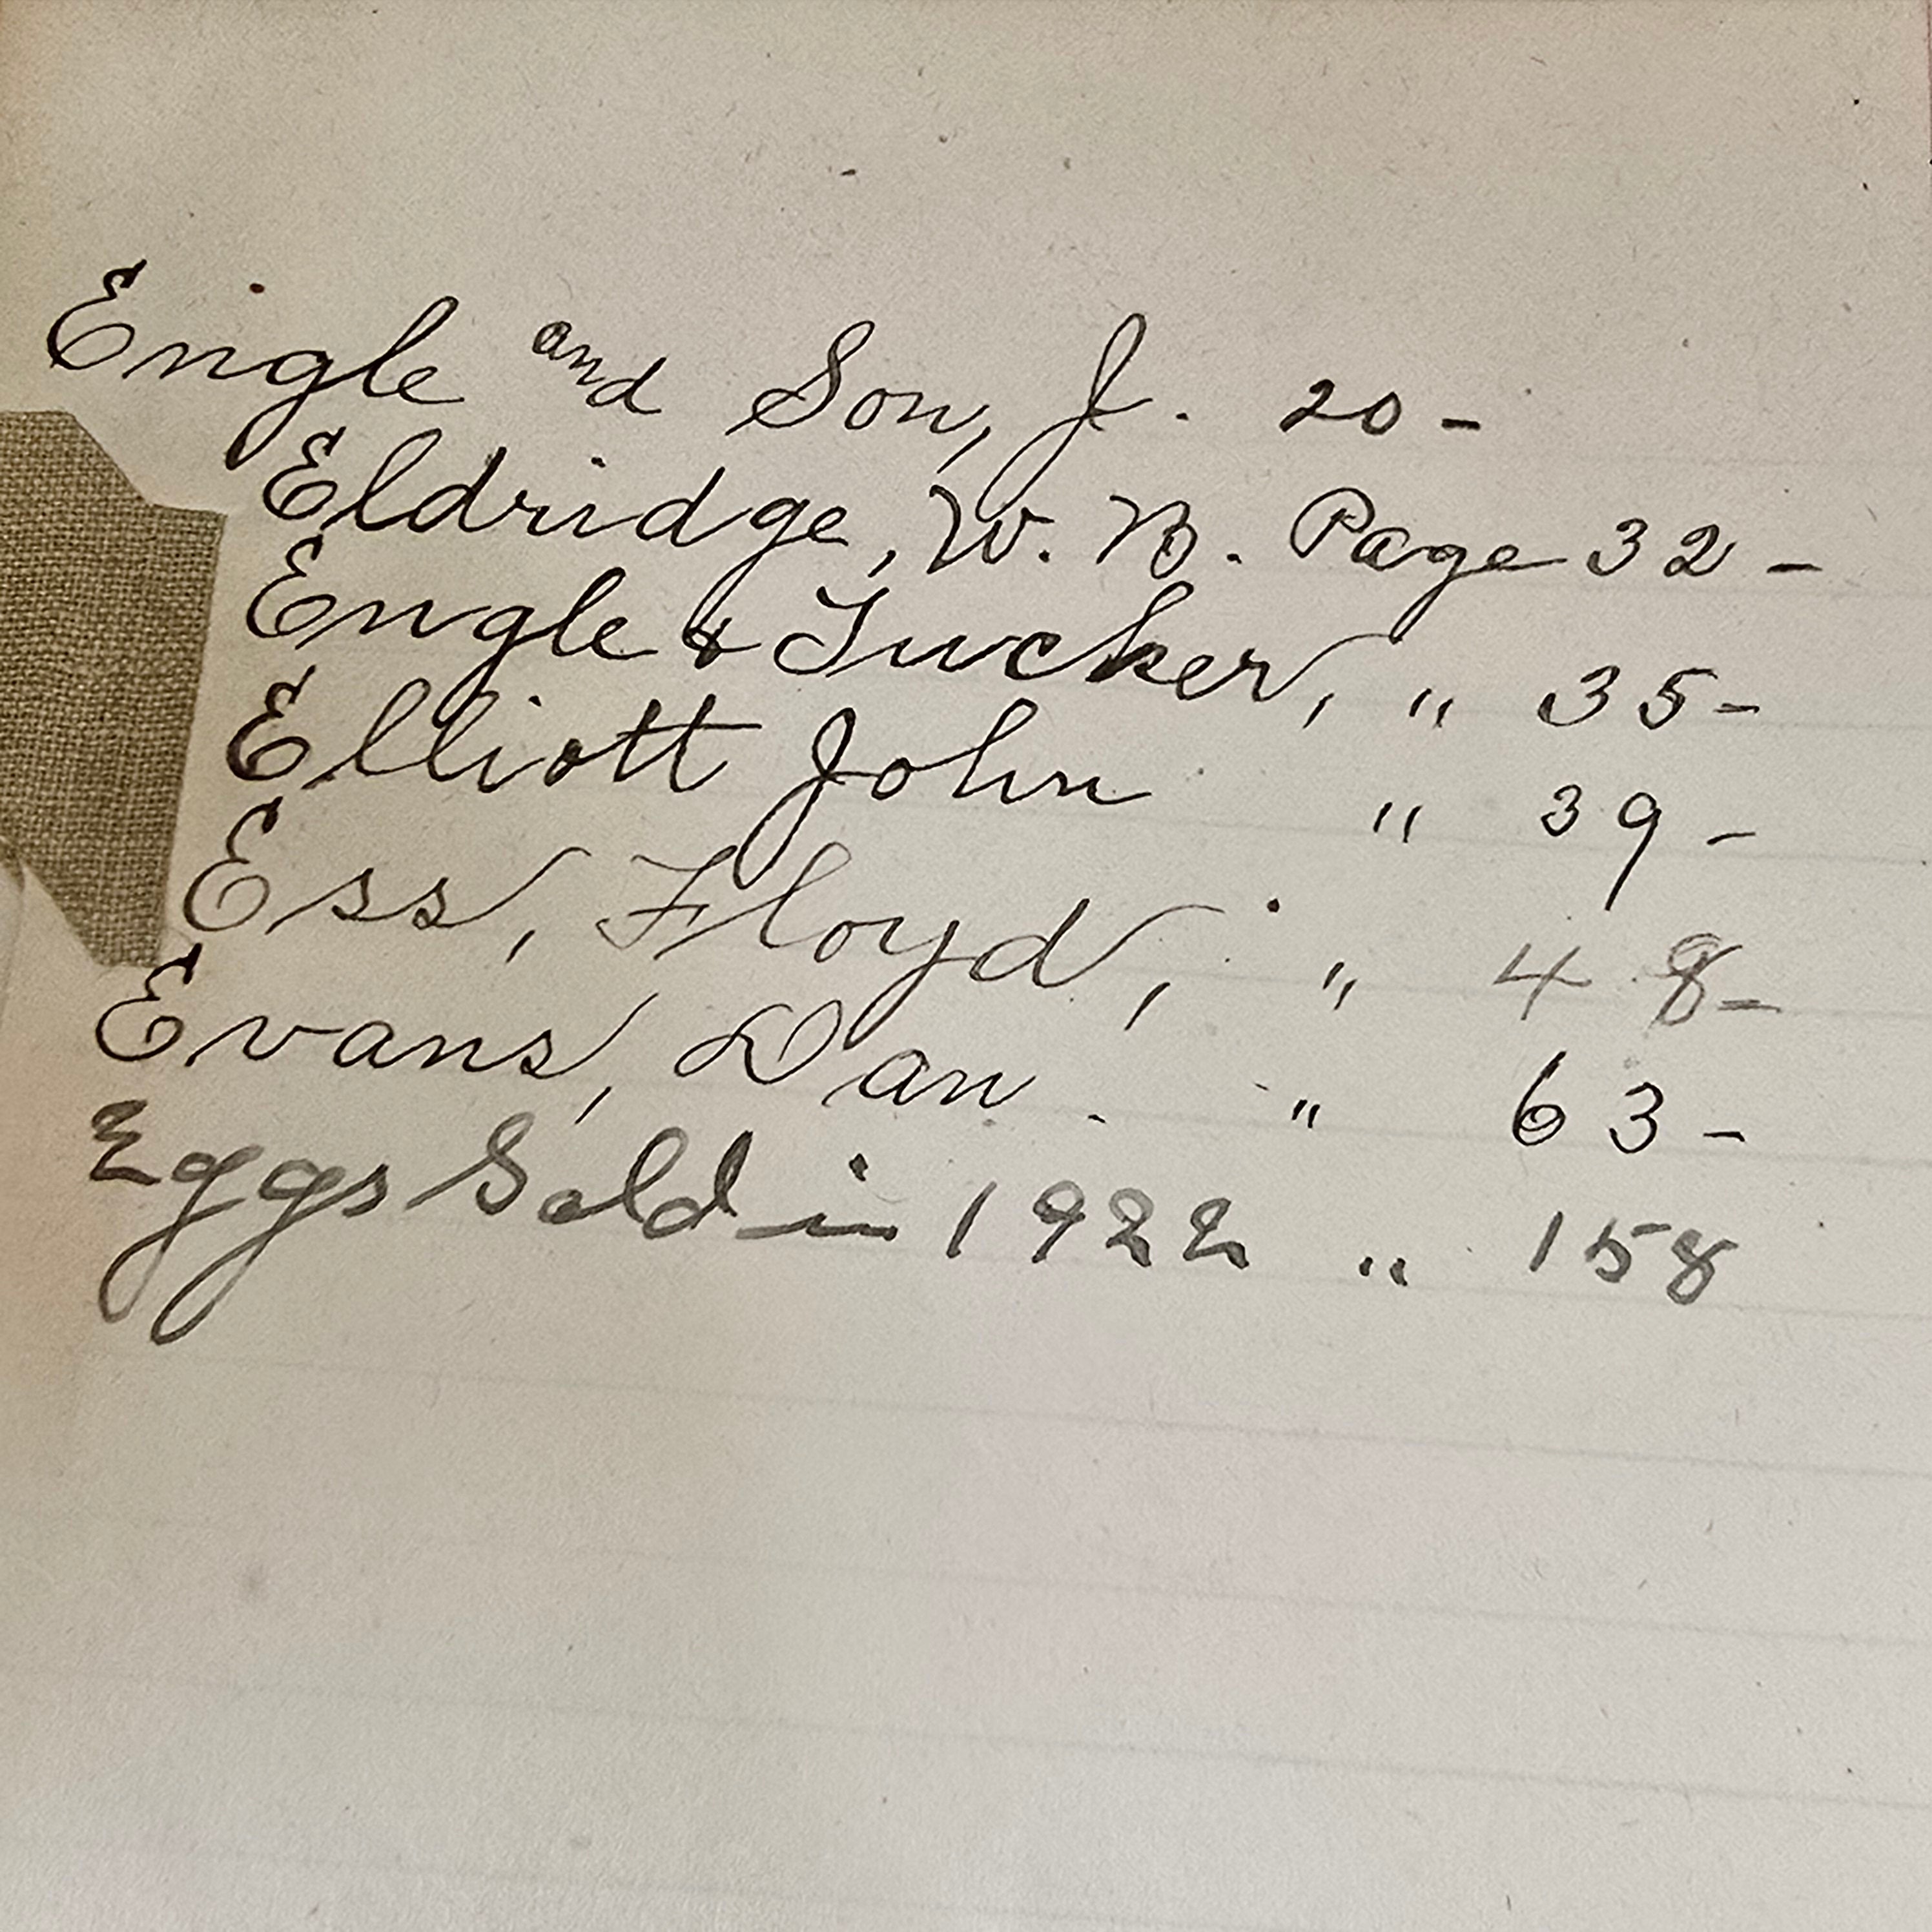 Engle and Son, J. 20-
Eldridge, W. B. Page 32-
Engle & Tucker, " 35-
Elliott John " 39-
Ess, Floyd, " 48-
Evans, Dan. " 63-
Eggs Sold in 1922 " 158